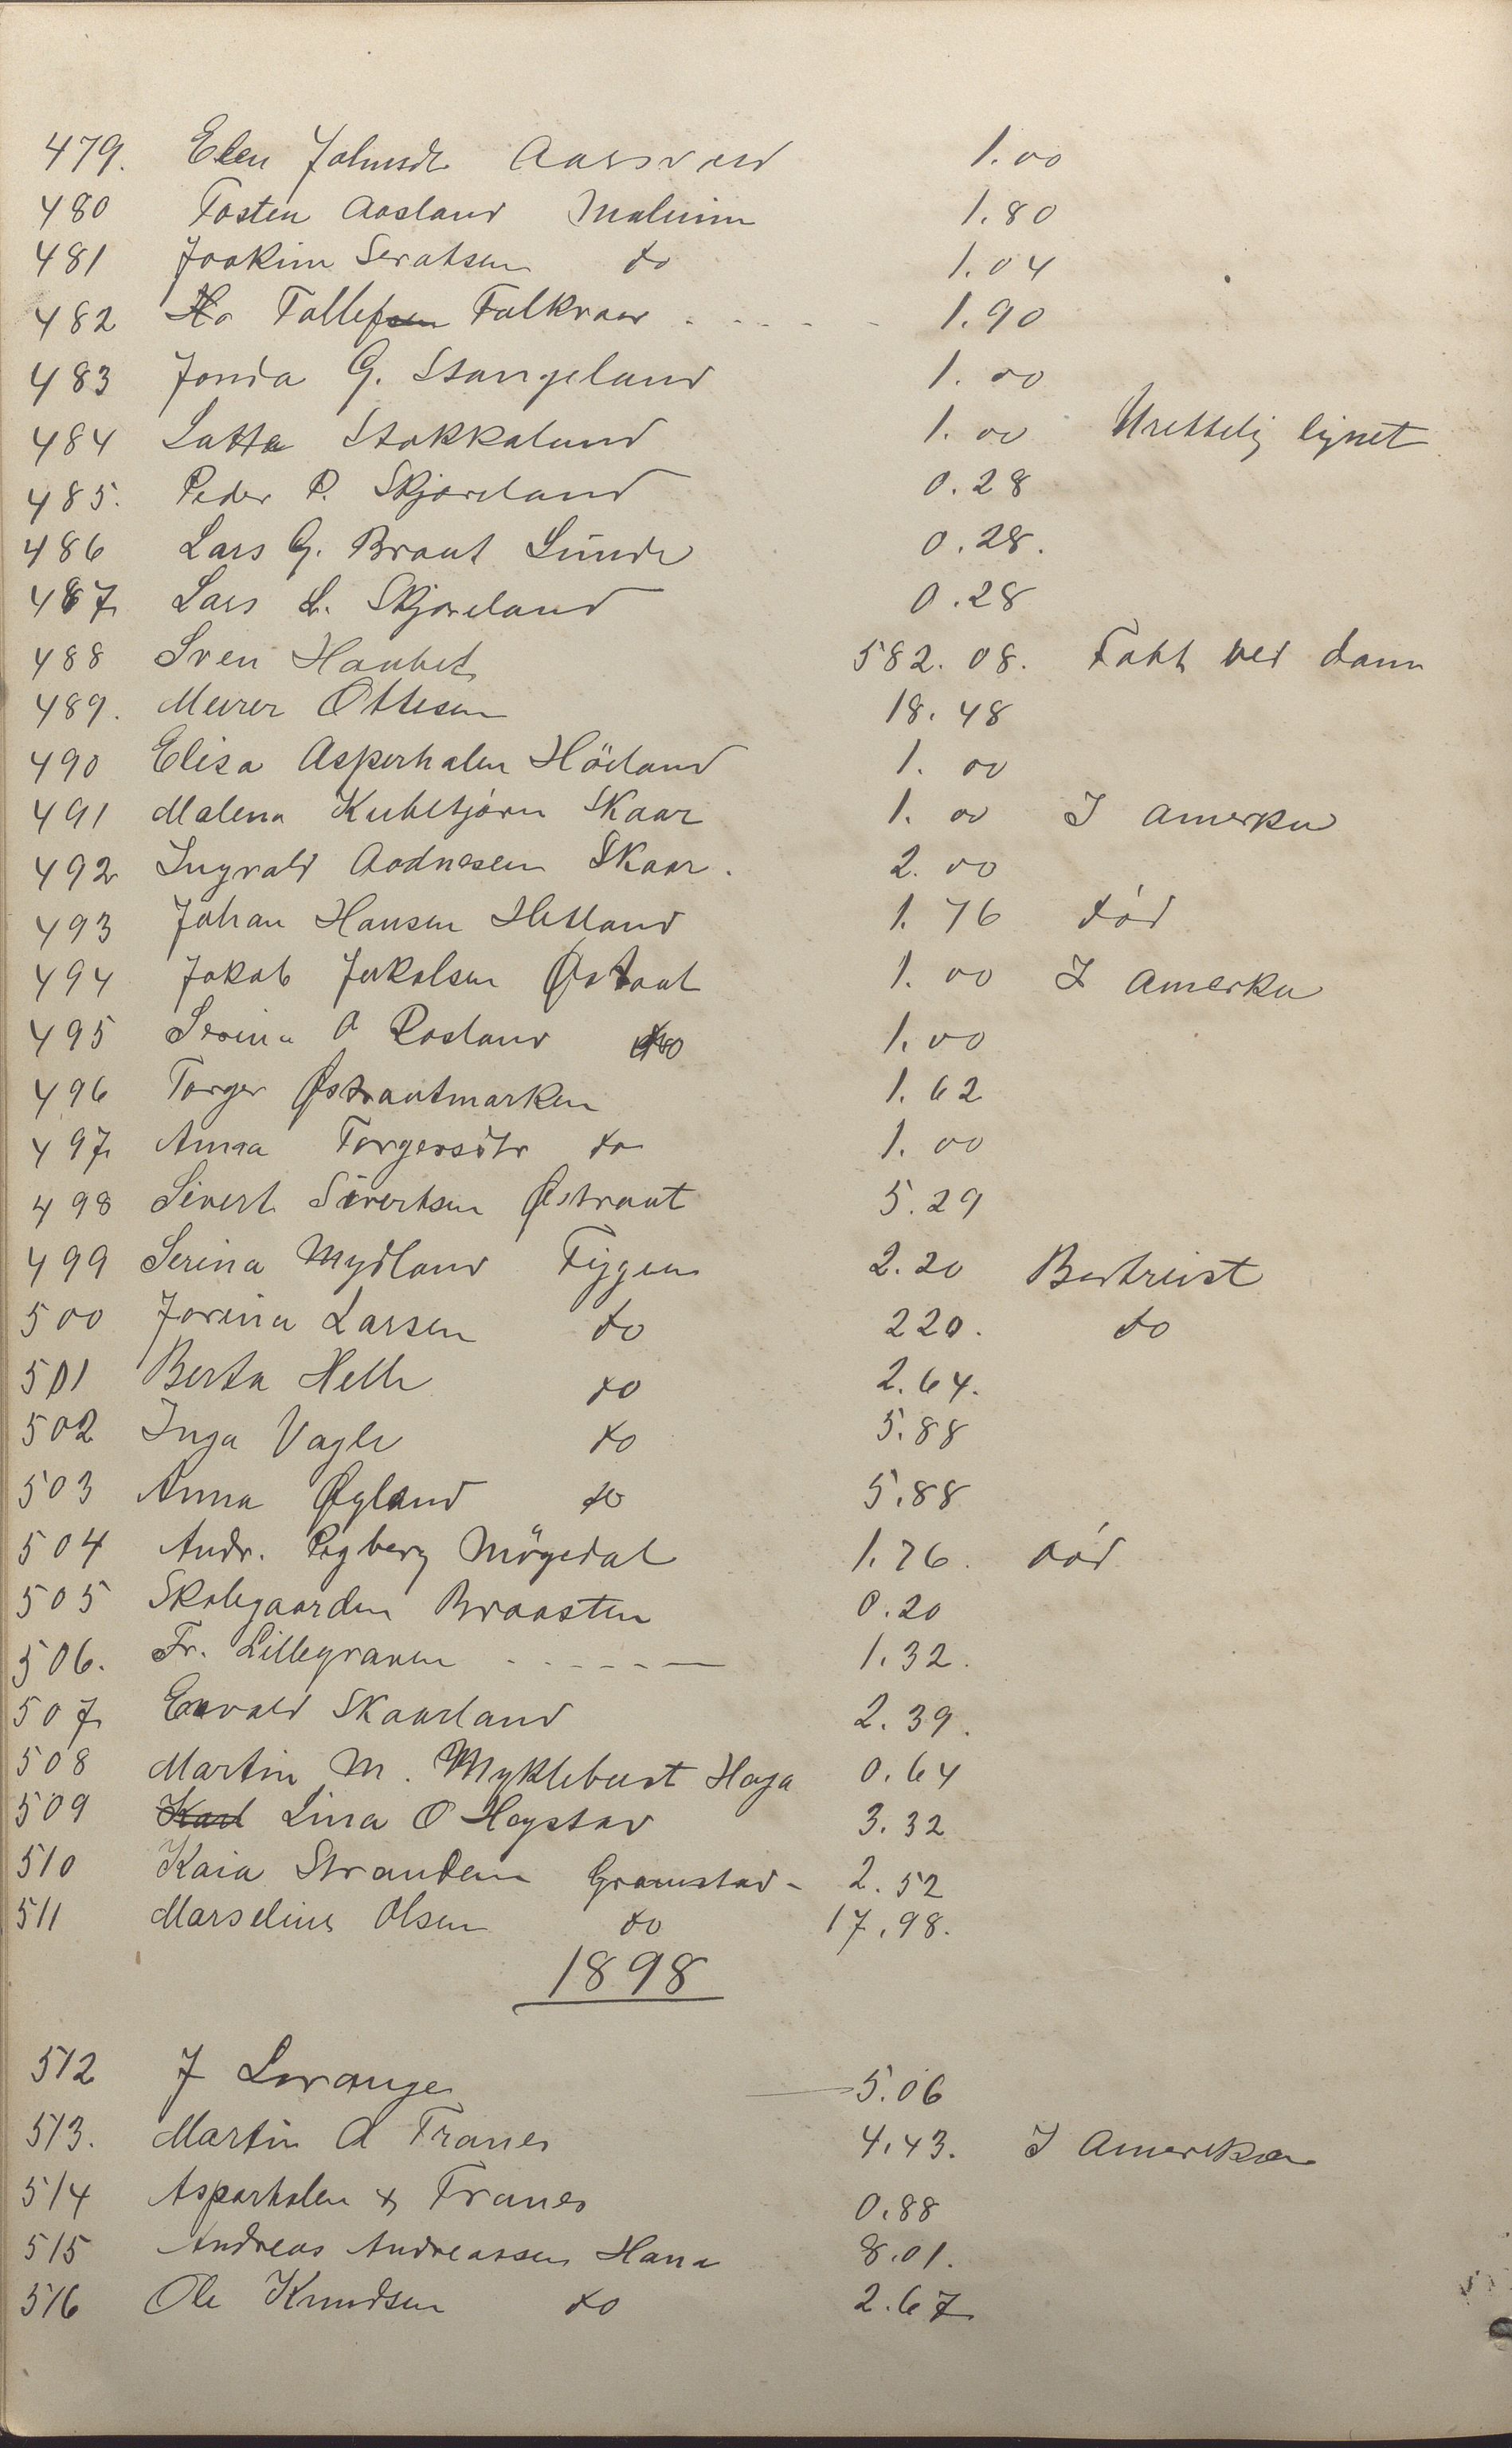 479. Elen Johnsdt Aarsvend 1.00
480 Tosten Aasland Malmim 1.80
481 Joakim Seratsen do 1.04
482 Tollefsen Folkvor - - - - - 1.90
483 Jonda G. Stangeland 1.00
484 Lotta Stokkaland 1.00 Urettelig lignet
485. Peder P. Skjæveland 0.28
486 Lars G. Braut Lunde 0.28.
487 Lars L. Skjæveland 0.28
488 Sven Haubet 582.08. Tabt ved dom
489. Meier Ottesen 18.48
490 Elisa Asperhalen Höiland 1.00
491 Malena Kubbtjørn Skaar 1.00 I Amerka
492 Ingvald Aadnesen Skaar. 2.00
493 Johan Hansen Hetland 1.76 død
494 Jakob Jakobsen Østraat 1.00 I Amerka
495 Serina A Rosland do 1.00
496 Torger Østraatmarken 1.62
497 Anna Torgersdtr do 1.00
498 Sivert Sivertsen Østraat 5.29
499 Serina Mydland Figgen 2.20 Bortreist
500 Jorina Larsen do 220. do
501 Berta Helle do 2.64.
502 Inga Vagle do 5.88
503 Anna Øgland do 5.88
504 Andr. Rygberg Mögedal 1.76. død
505 Skolegaarden Braasten 0.20
506. Fr. Lillegraven - - - - - 1.32.
507 Envald Skaarland 2.39.
508 Martin M. Myklebust Hoga 0.64
509 Karl Lina O Hogstad 3.32
510 Kaia Stranden Gramstad - 2.52
511 Marselius Olsen do 17.98.
1898
512 J Lorange 5.06
513. Martin A Tranes 4.43. I Amerika
514 Asperhalen & Tranes 0.88
515 Andreas Andreassen Hana 8.01.
516 Ole Knudsen do 2.67